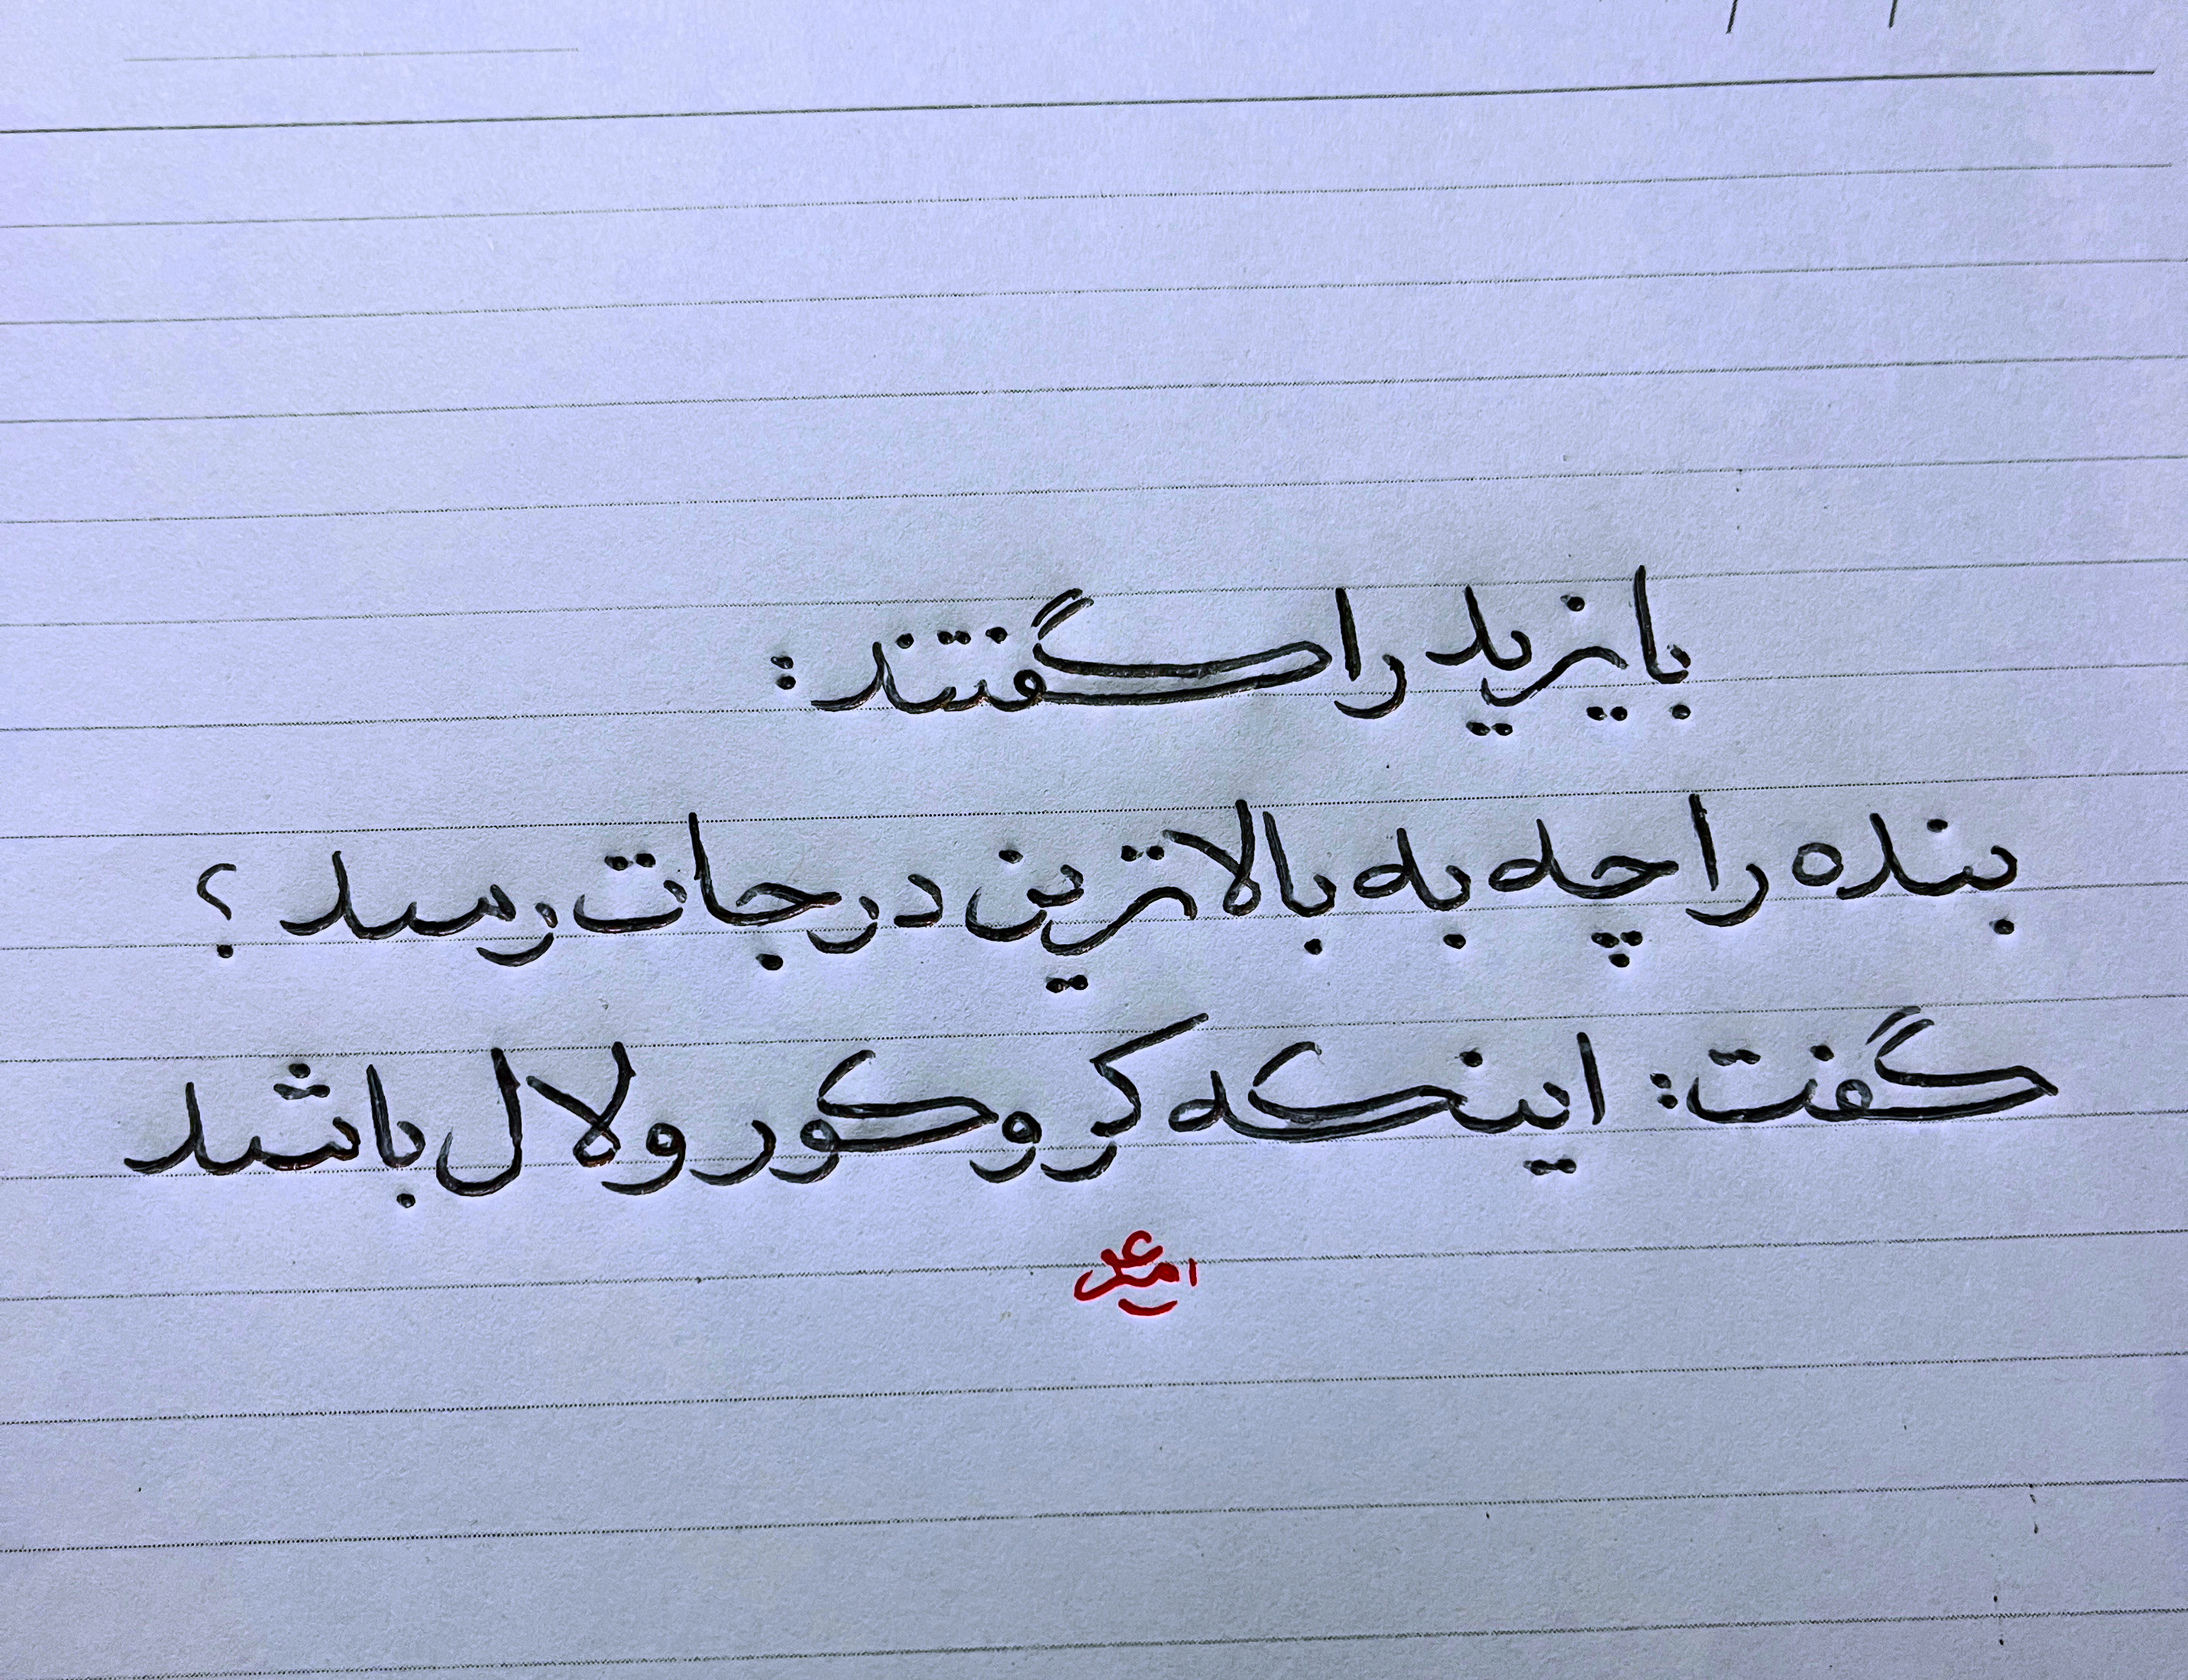 بایزید را گفتند:
بنده را چه به بالاترین درجات رسد؟
گفت: اینکه کر و کور و لال باشد